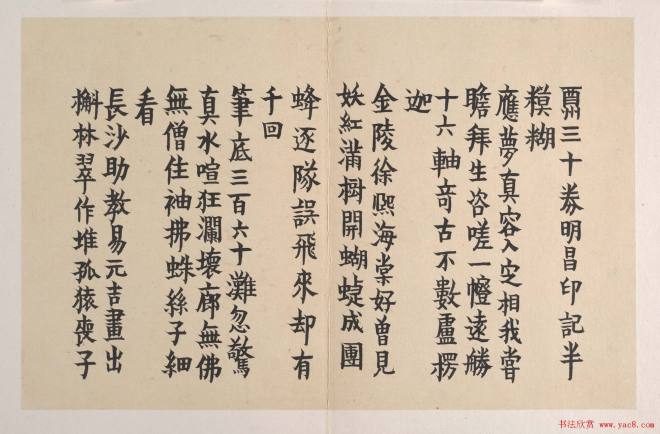 三十券明昌印記半
糢糊
應夢真容入定相我嘗
瞻拜生咨嗟一㡧遠勝
十六軸奇古不數盧楞
迦
金陵徐熙海棠好曾見
妖紅滿樹開蝴蜨成團
蜂逐隊誤飛來却有
千回
筆底三百六十灘忽驚
真水喧狂瀾壞廊無佛
無僧住袖拂蛛絲子細
看
長沙助教易元吉畫出
槲林翠作堆孤猿喪子
书法欣赏 www.yac8.com